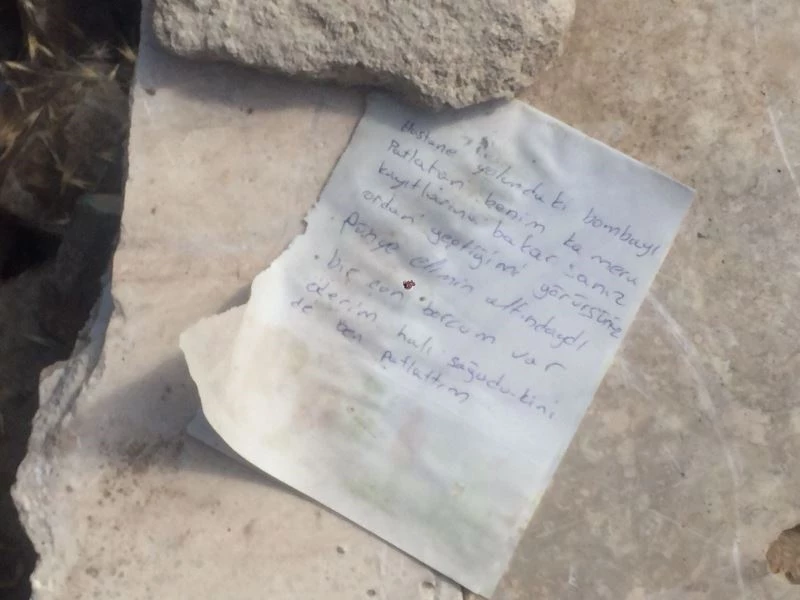 Hastane yolundaki bombayı
Patlatan benim kamera
kayıtlarına bakarsanız
ordan geçtiğimi görürsünüz
Pünye elimin altındaydı
bir can borcum var
öderim halı sağudukini
de ben patlattım